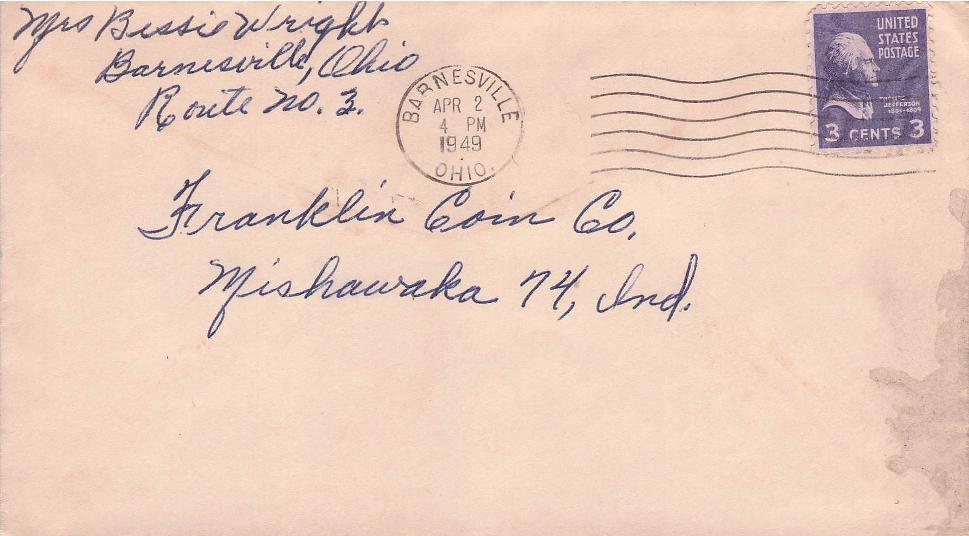 Mrs Bessie Wright
Barnesville, Ohio
Route no. 3.
BARNESVILLE
APR 2
4 PM
1949
OHIO.
UNITED
STATES
POSTAGE
JEFFERSON
3 CENTS 3
Franklin Coin Co.
Mishawaka 74, Ind.